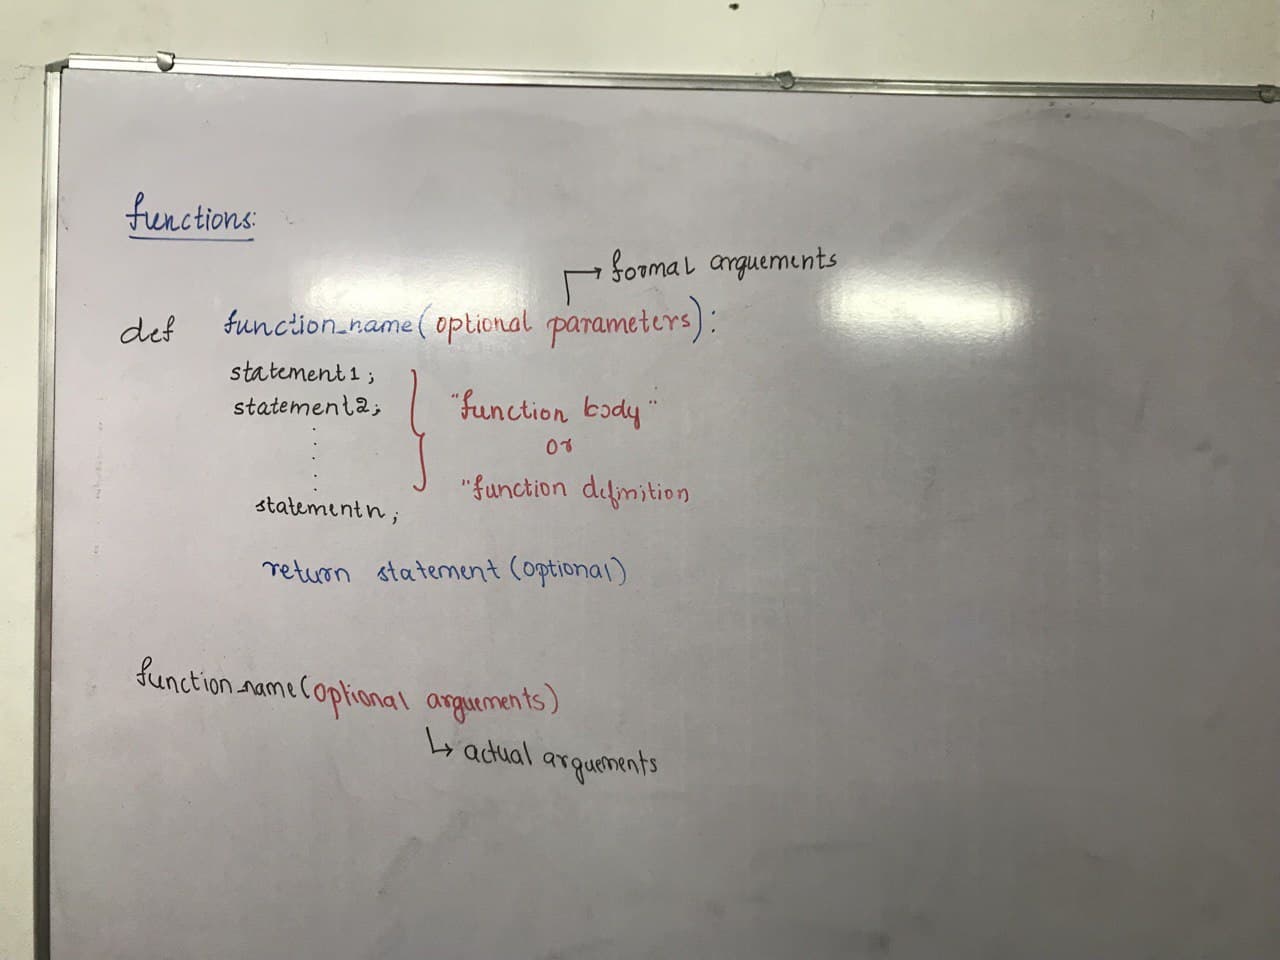 functions:
formal arguements
def function_name(optional parameters):
statement1;
statement2;
"function body"
or
"function definition
statementn;
return statement (optional)
function_name(optional arguements)
actual arguements